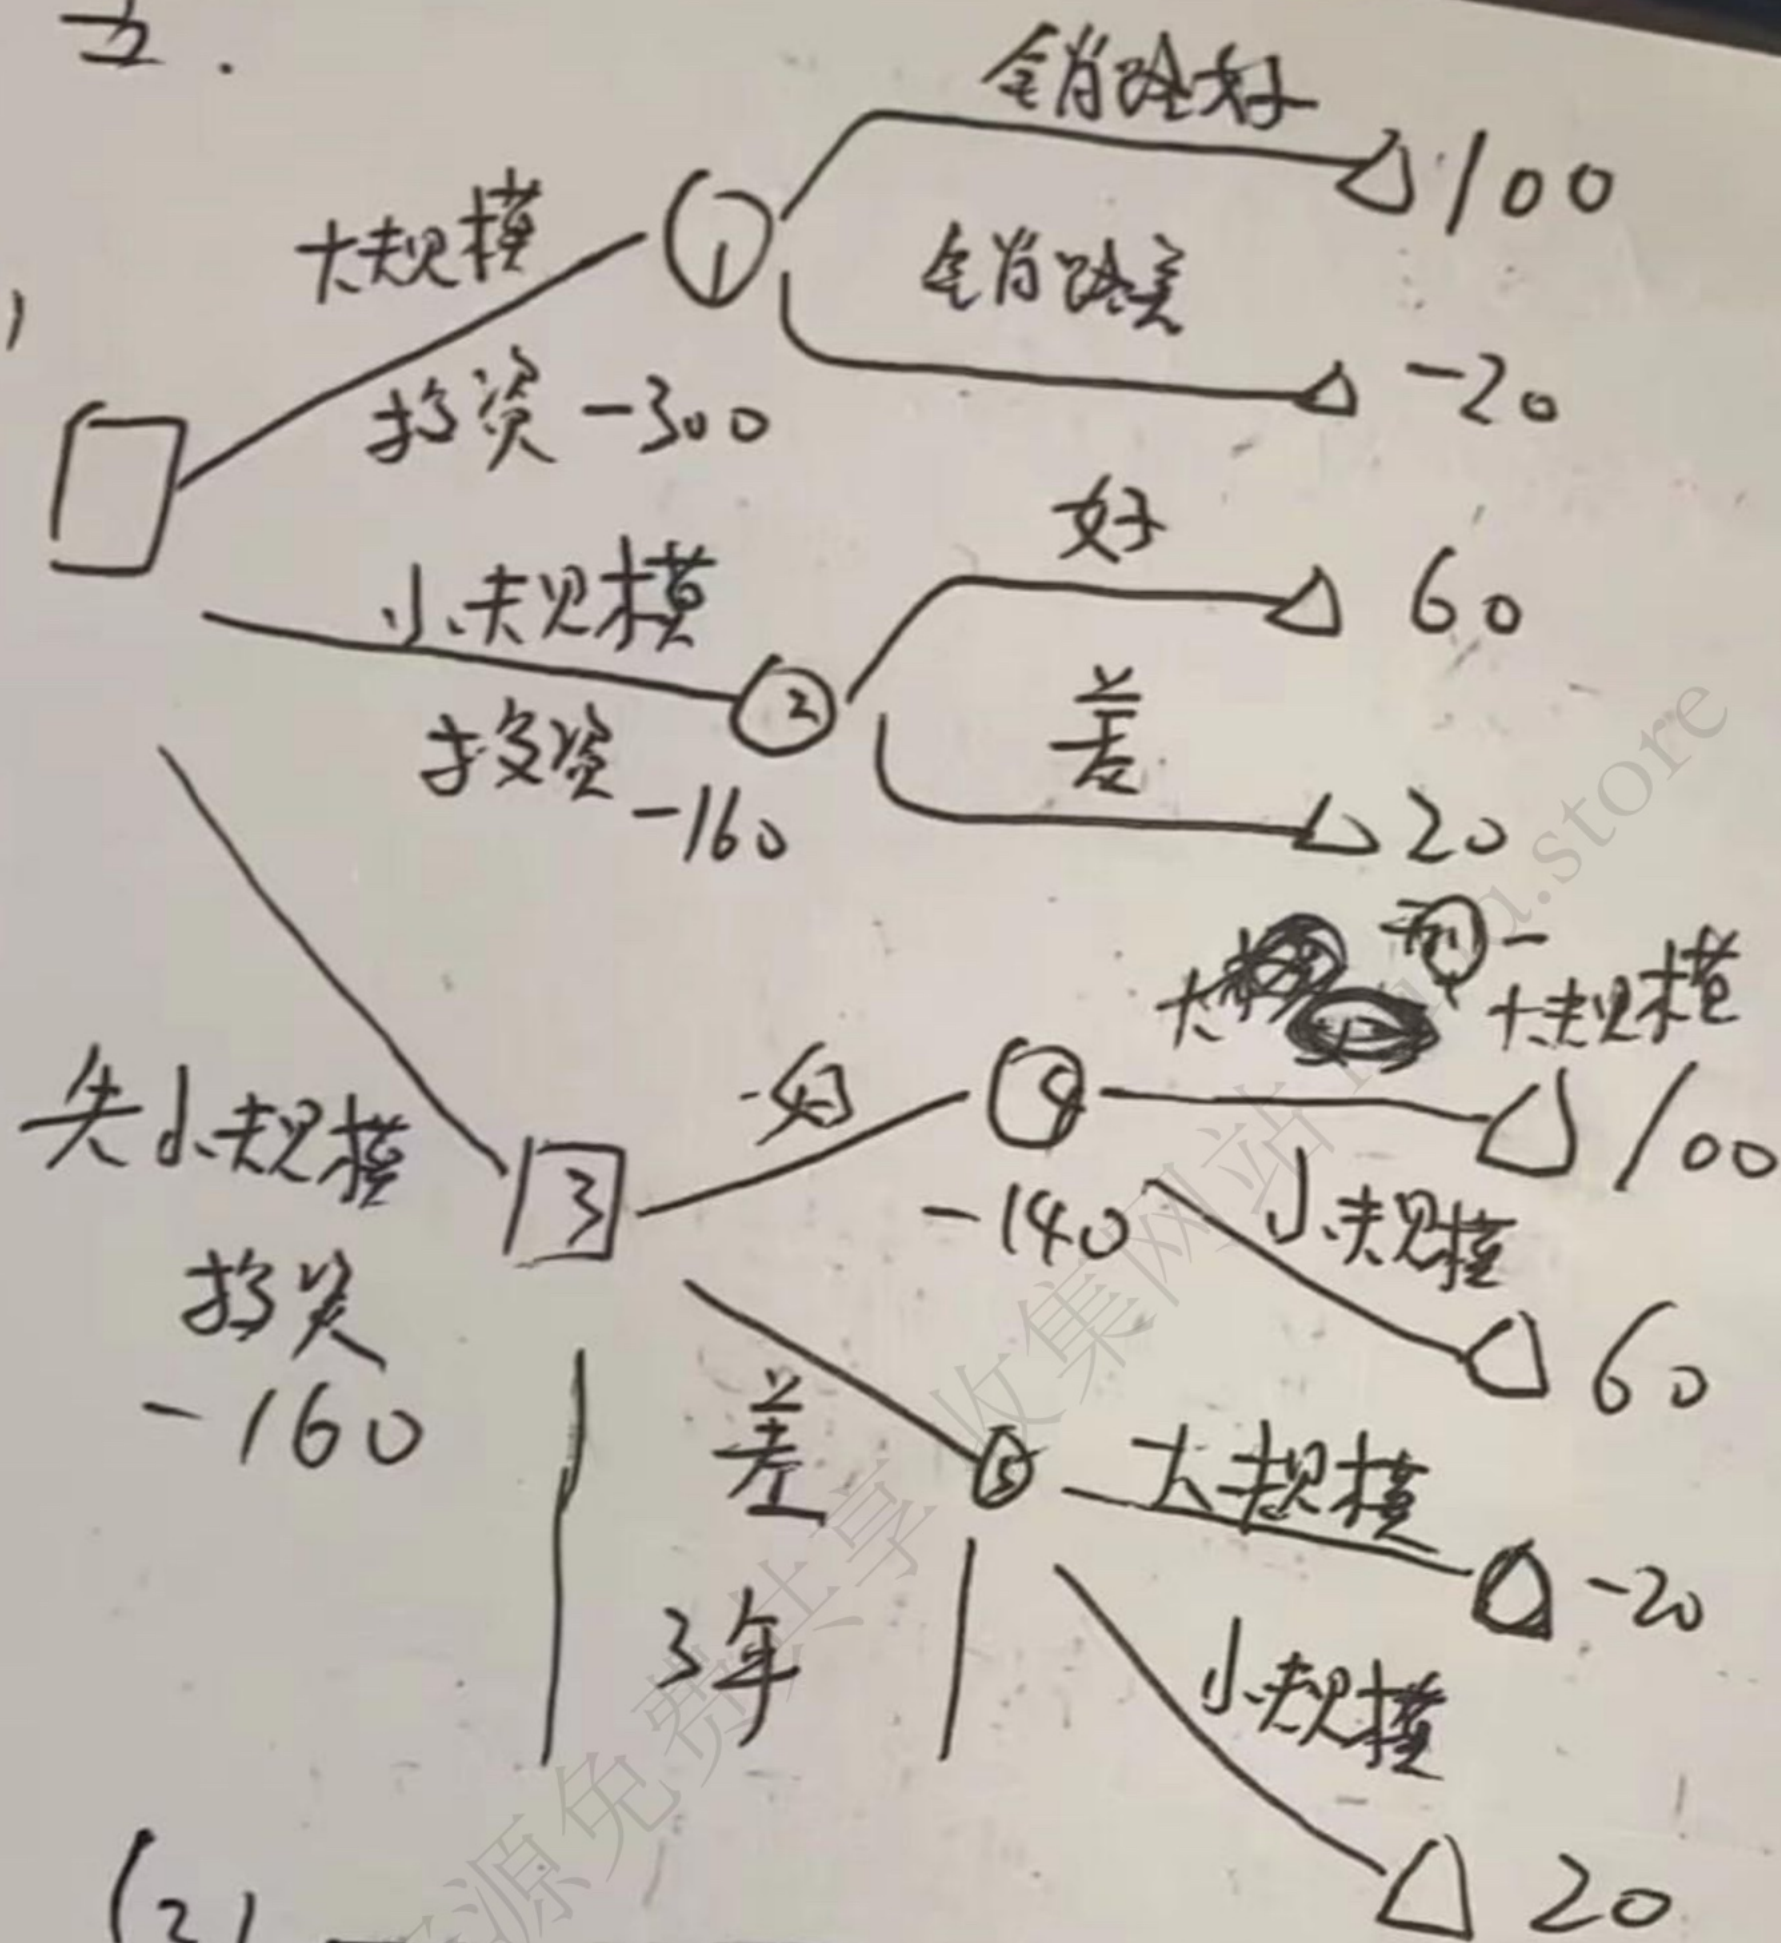 五.
销路好
100
大规模
1
1)
销路差
投资 -300
-20
好
60
小规模
2
差
投资
-160
20
大规模
好
4
100
先小规模
3
-140
小规模
投资
60
-160
差
5
大规模
-20
3年
小规模
20
(2)
资源免费共享 收集网站
.store